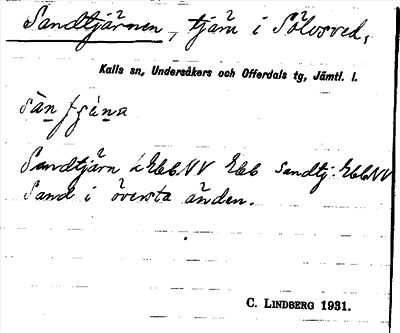 Sandtjärnen, tjärn i Sölvsved,
Kalls sn, Undersåkers och Offerdals tg, Jämtl. l.
Sandtjärn k Ebb NV Ebb Sandtj. Ebb NV
Sand i översta änden.
C. LINDBERG 1931.